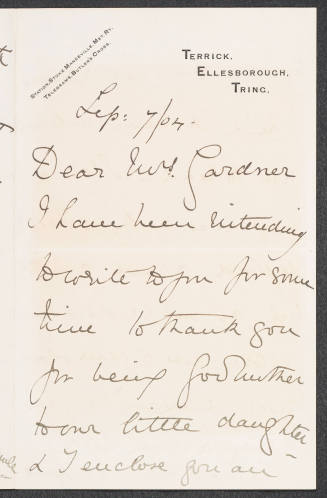 STATION, STOKE MANDEVILLE, MET. RY.
TELEGRAMS, BUTLERS CROSS.
TERRICK,
ELLESBOROUGH,
TRING.
Sep: 7/04.
Dear Mrs. Gardner
I have been intending
to write to you for some
time to thank you
for being Godmother
to our little daughter
& I enclose you an